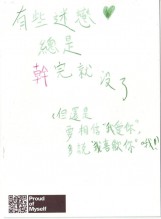 有些迷戀
總是
幹完就沒了
(但還是
要相信"我愛你"
多說"我喜歡你"哦!!
Proud
of
Myself